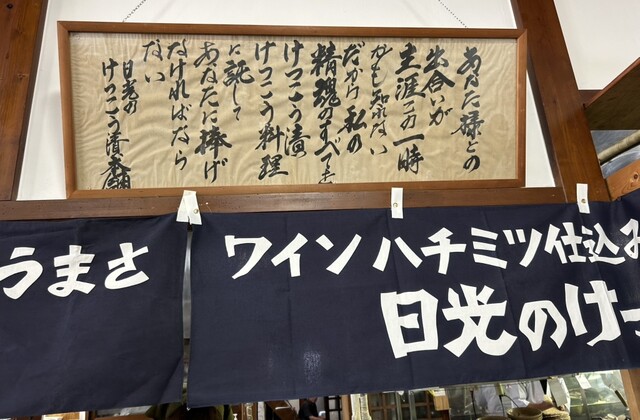 あなた様との
出合いが
生涯この一時
かも知れない
だから私の
精魂のすべてを
けっこう漬
けっこう料理
に託して
あなたに捧げ
なければなら
ない
日光の
けっこう漬本舗
うまさ
ワインハチミツ仕込み
日光のけっ